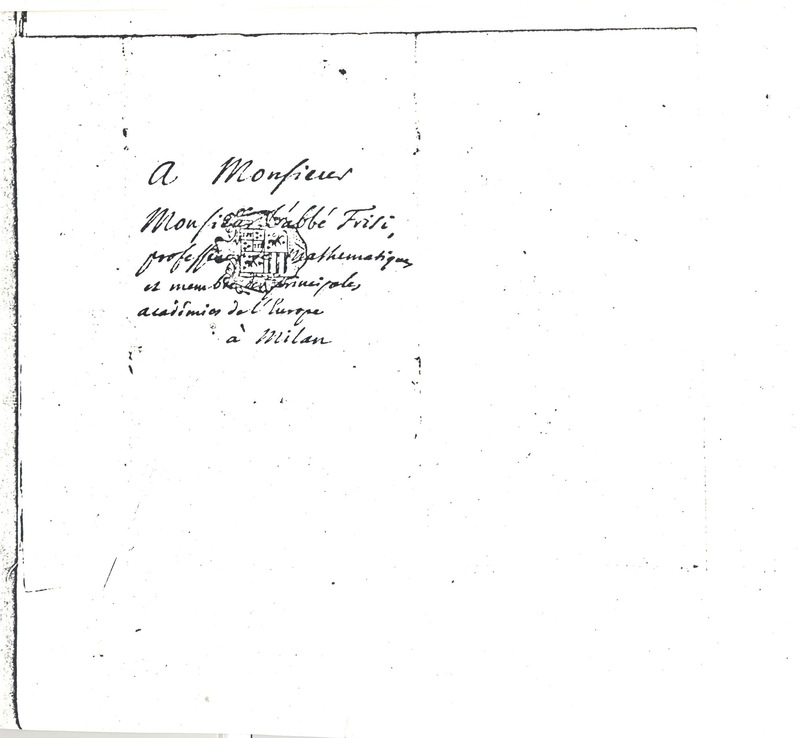 A Monsieur
Monsieur l'abbé Frisi,
professeur de Mathematiques
et membre des principales
académies de l'Europe
à Milan